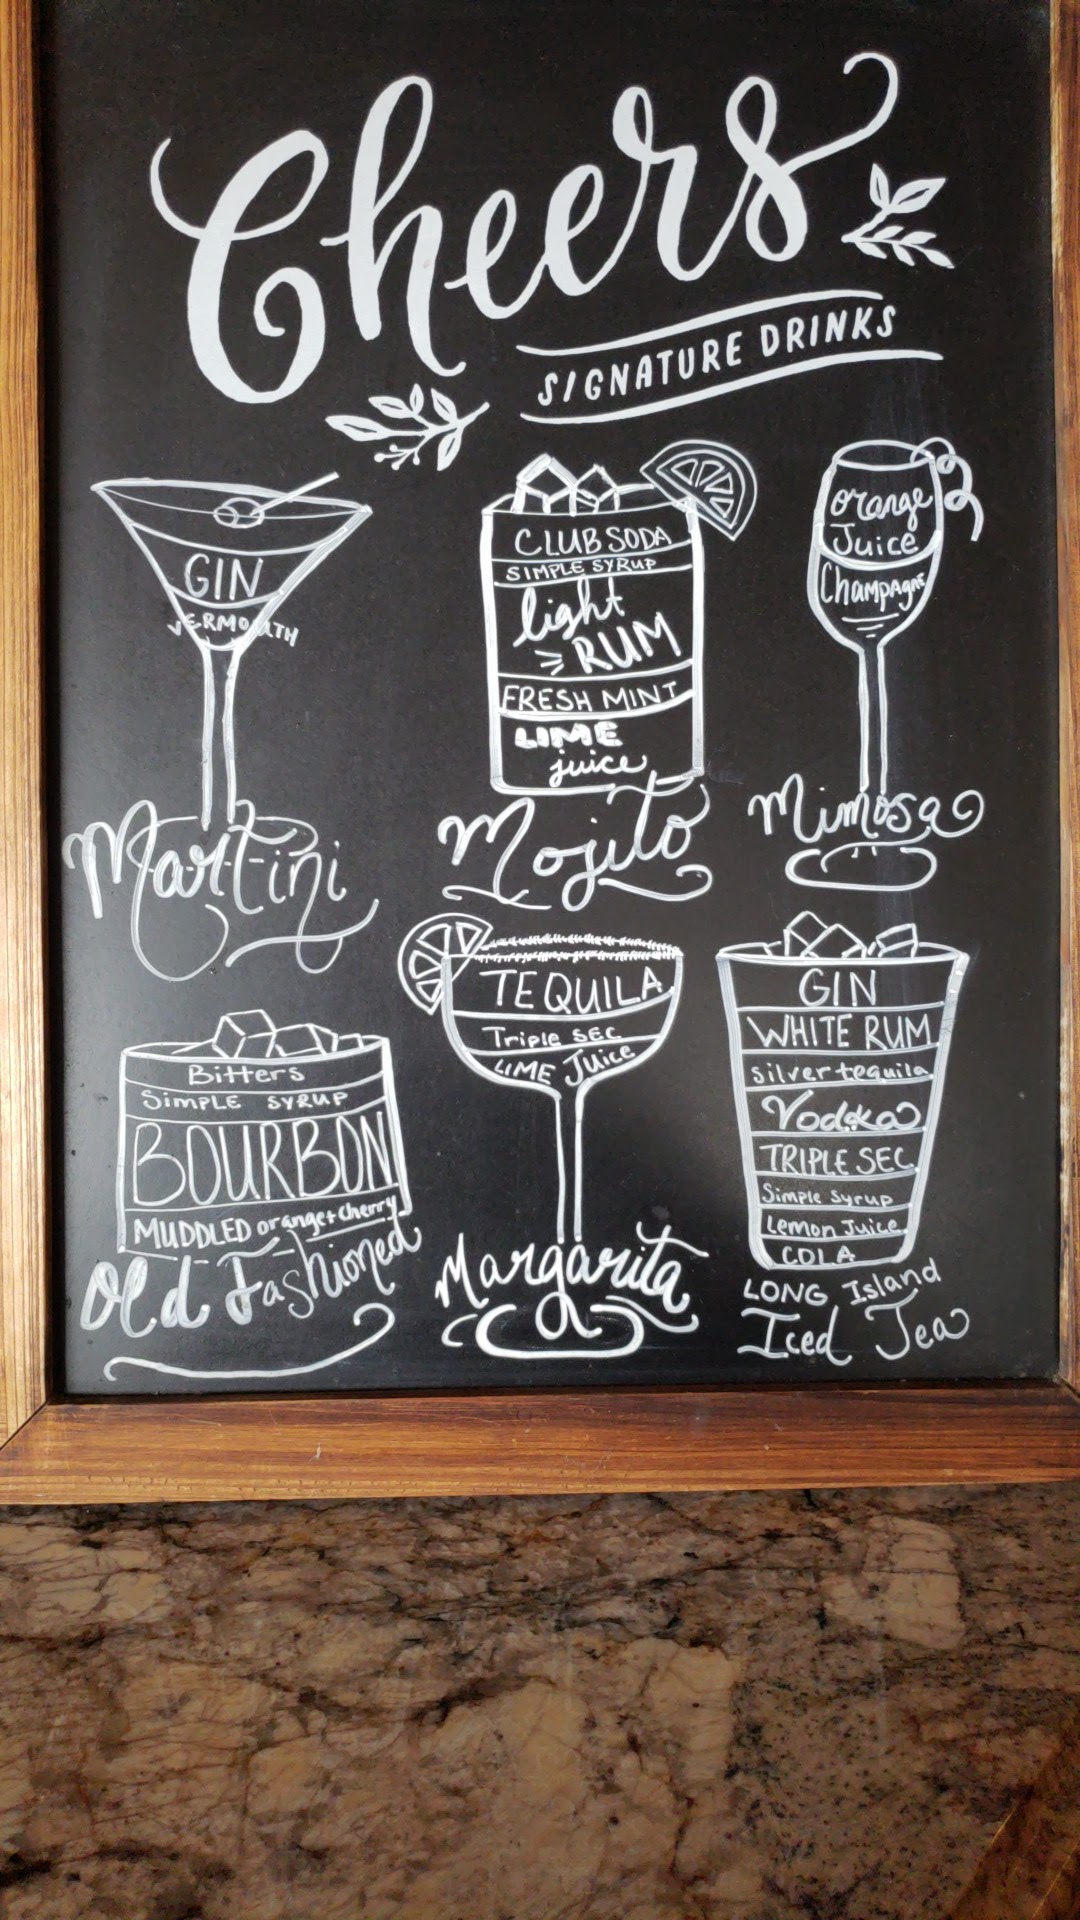 Cheers
SIGNATURE DRINKS
GIN
VERMOUTH
Martini
CLUB SODA
SIMPLE SYRUP
light
RUM
FRESH MINT
LIME
juice
Mojito
orange
Juice
Champagne
Mimosa
Bitters
SIMPLE SYRUP
BOURBON
MUDDLED orange + cherry
Old Fashioned
TEQUILA
Triple SEC
LIME Juice
Margarita
GIN
WHITE RUM
silver tequila
Vodka
TRIPLE SEC
Simple Syrup
Lemon Juice
COLA
LONG Island
Iced Tea